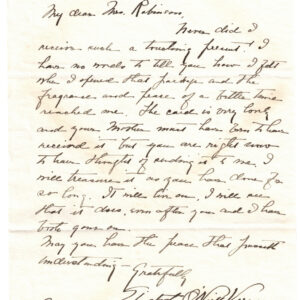 My dear Mrs. Robinson,
Never did I
receive such a touching present! I
have no words to tell you how I felt
when I opened that package and the
fragrance and peace of a better time
reached me. The card is very lovely
and your Mother must have been to have
received it but you are right
to have thought of sending it to me. I
will treasure it as you have done for
so long. It will live on, I will see
that it does, even after you and I have
both gone on.
May you have the peace that passeth
understanding —
Gratefully